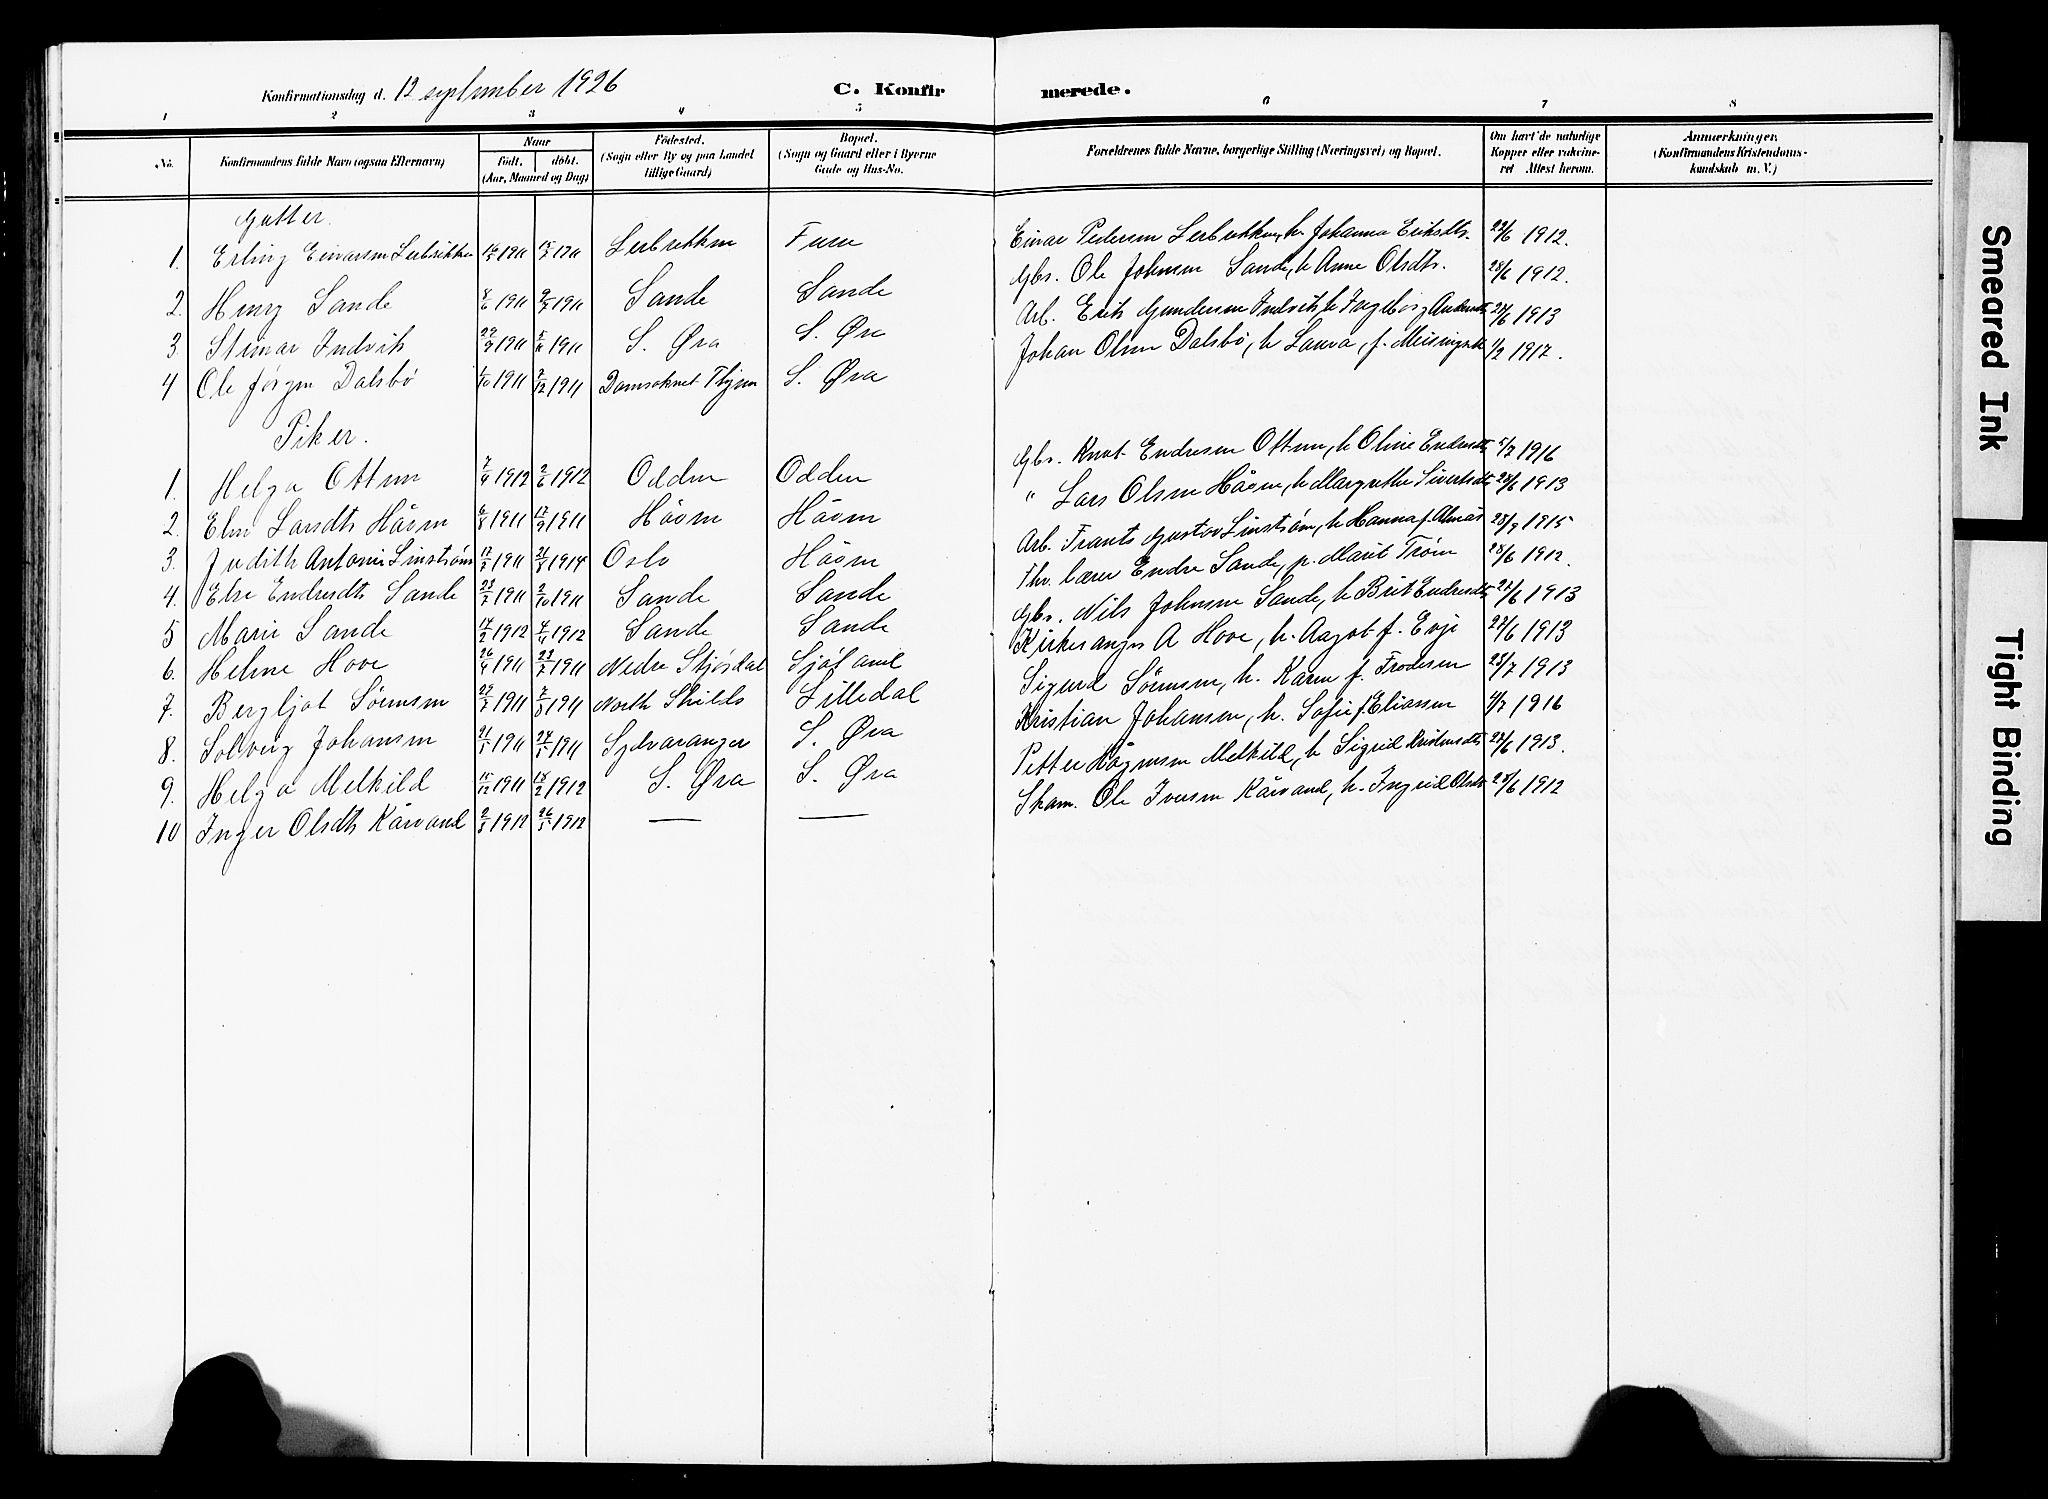 Konfirmationsdag d. 12 september 1926 C. Konfirmerede.
1 2 3 4 5 6 7 8
No. Konfirmandens fulde Navn (ogsaa Efternavn) Naar født, døbt. (Aar, Maaned og Dag) Fødested. (Sogn eller By og paa Landet tillige Gaard) Bopæl. (Sogn og Gaard eller i Byerne Gade og Hus-No. Forældrenes fulde Navne, borgerlige Stilling (Næringsvei) og Bopæl. Om havt de naturlige Kopper eller vakcineret Attest herom. Anmærkninger. (Konfirmandens Kristendomskundskab m. V.)
Gutter.
1. Erling Einarsen Lerbrekken 1911 1911 Lerbrekken Furu Einar Pedersen Lerbrekken, h. Johanna Eriksdtr. 22/6 1912.
2. Henry Sande 4/6 1911 9/7 1911 Sande Sande Gbr. Ole Johnsen Sande, h Anne Olsdtr. 28/6 1912.
3. Steinar Indvik 1911 1911 S. Øra S. Øra Arb. Erik Gundersen Indvik, h Ingeborg Andersdtr 27/6 1913
4 Ole Jørgen Dalsbø 1911 1911 S. Øra Johan Olsen Dalsbø, h Laura, f. 1/9 1912.
Piker.
1. Helga Ottem 1912 1912 Odden Odden Gbr. Knut Endresen Ottem, h Oline Endresdtr 5/7 1916
2. Elen Larsdtr Håven 6/8 1911 17/9 1911 Håven Håven " Lars Olsen Håven, h Margrethe Sivertsdtr 28/6 1913
3. Judith Antonie Linstrøm 1911 1914 Oslo Håven Arb. Frants Gustav Linstrøm, h Hanna f. Almås 1915
4. Else Endresdtr Sande 23/7 1911 1911 Sande Sande Fhv. lærer Endre Sande, p. Marit Trøen 28/6 1912.
5 Marie Sande 14/2 1912 1912 Sande Sande Gbr. Nils Johnsen Sande, h Brit Endresdtr 27/6 1913
6. Helene Hove 26/4 1911 23/7 1911 Nedre Stjørdal Kirkesanger A Hove, h. Aagot f. Evje 27/6 1913
7. Bergljot Sørensen 1911 1911 North Shields Lilledal Sigurd Sørensen, h. Karen f. Frodesen 23/7 1913
8. Solveig Johansen 1911 1911 Sydvaranger S. Øra Kristian Johansen, h. Sofie f Eliassen 4/7 1916
9. Helga Melkild 1911 18/2 1912 S. Øra S. Øra Petter Hågensen Melkild, h Sigrid Kristensdtr 27/6 1913.
10 Inger Olsdtr Kårvand 2/3 1912 26/5 1912 — — Skom. Ole Iversen Kårvand, h. Ingrid Olsdtr 28/6 1912
Smeared Ink
Tight Binding